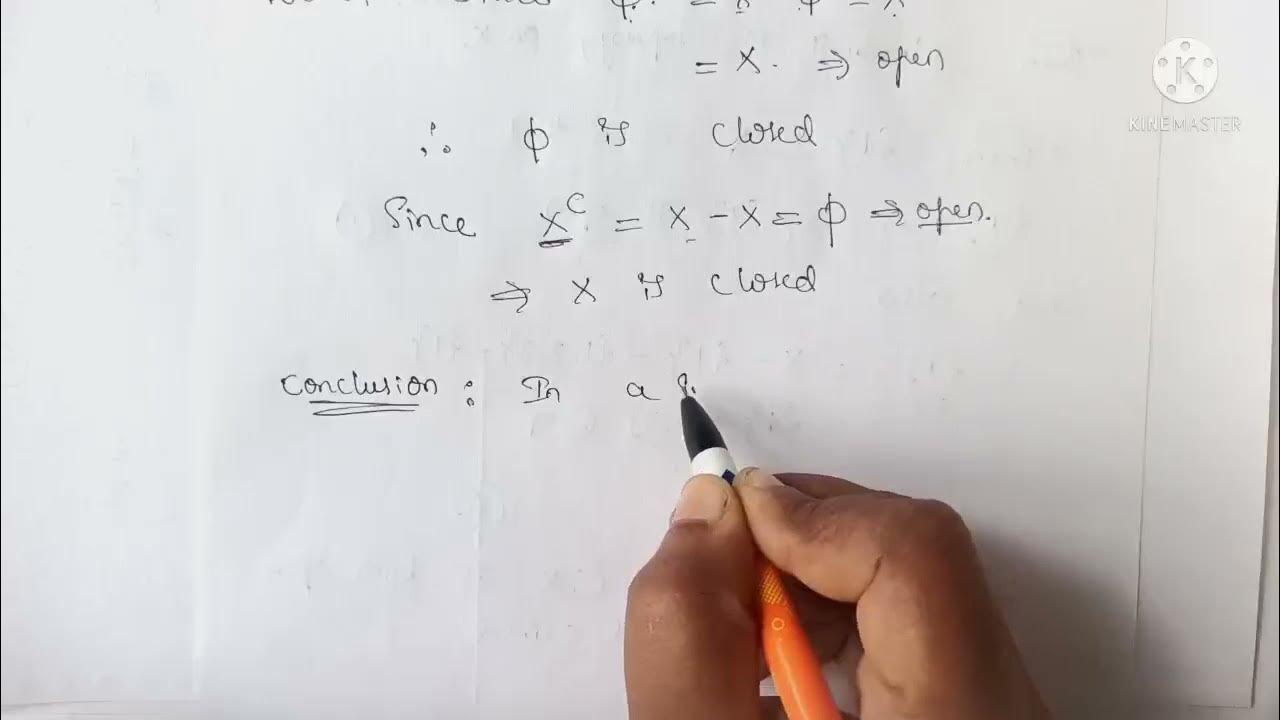 Since φ = X
= X. ⇒ open
∴ φ is closed
Since X^C = X - X = φ ⇒ open.
⇒ X is closed
Conclusion : In a
K
KINEMASTER